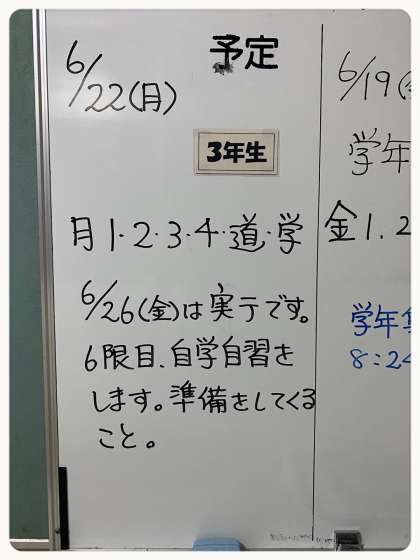 予定
6/22(月)
3年生
月1・2・3・4・道・学
6/26(金)は実テです。
6限目、自学自習を
します。準備をしてくる
こと。
6/19(
学年
金1.2
学年集
8:24